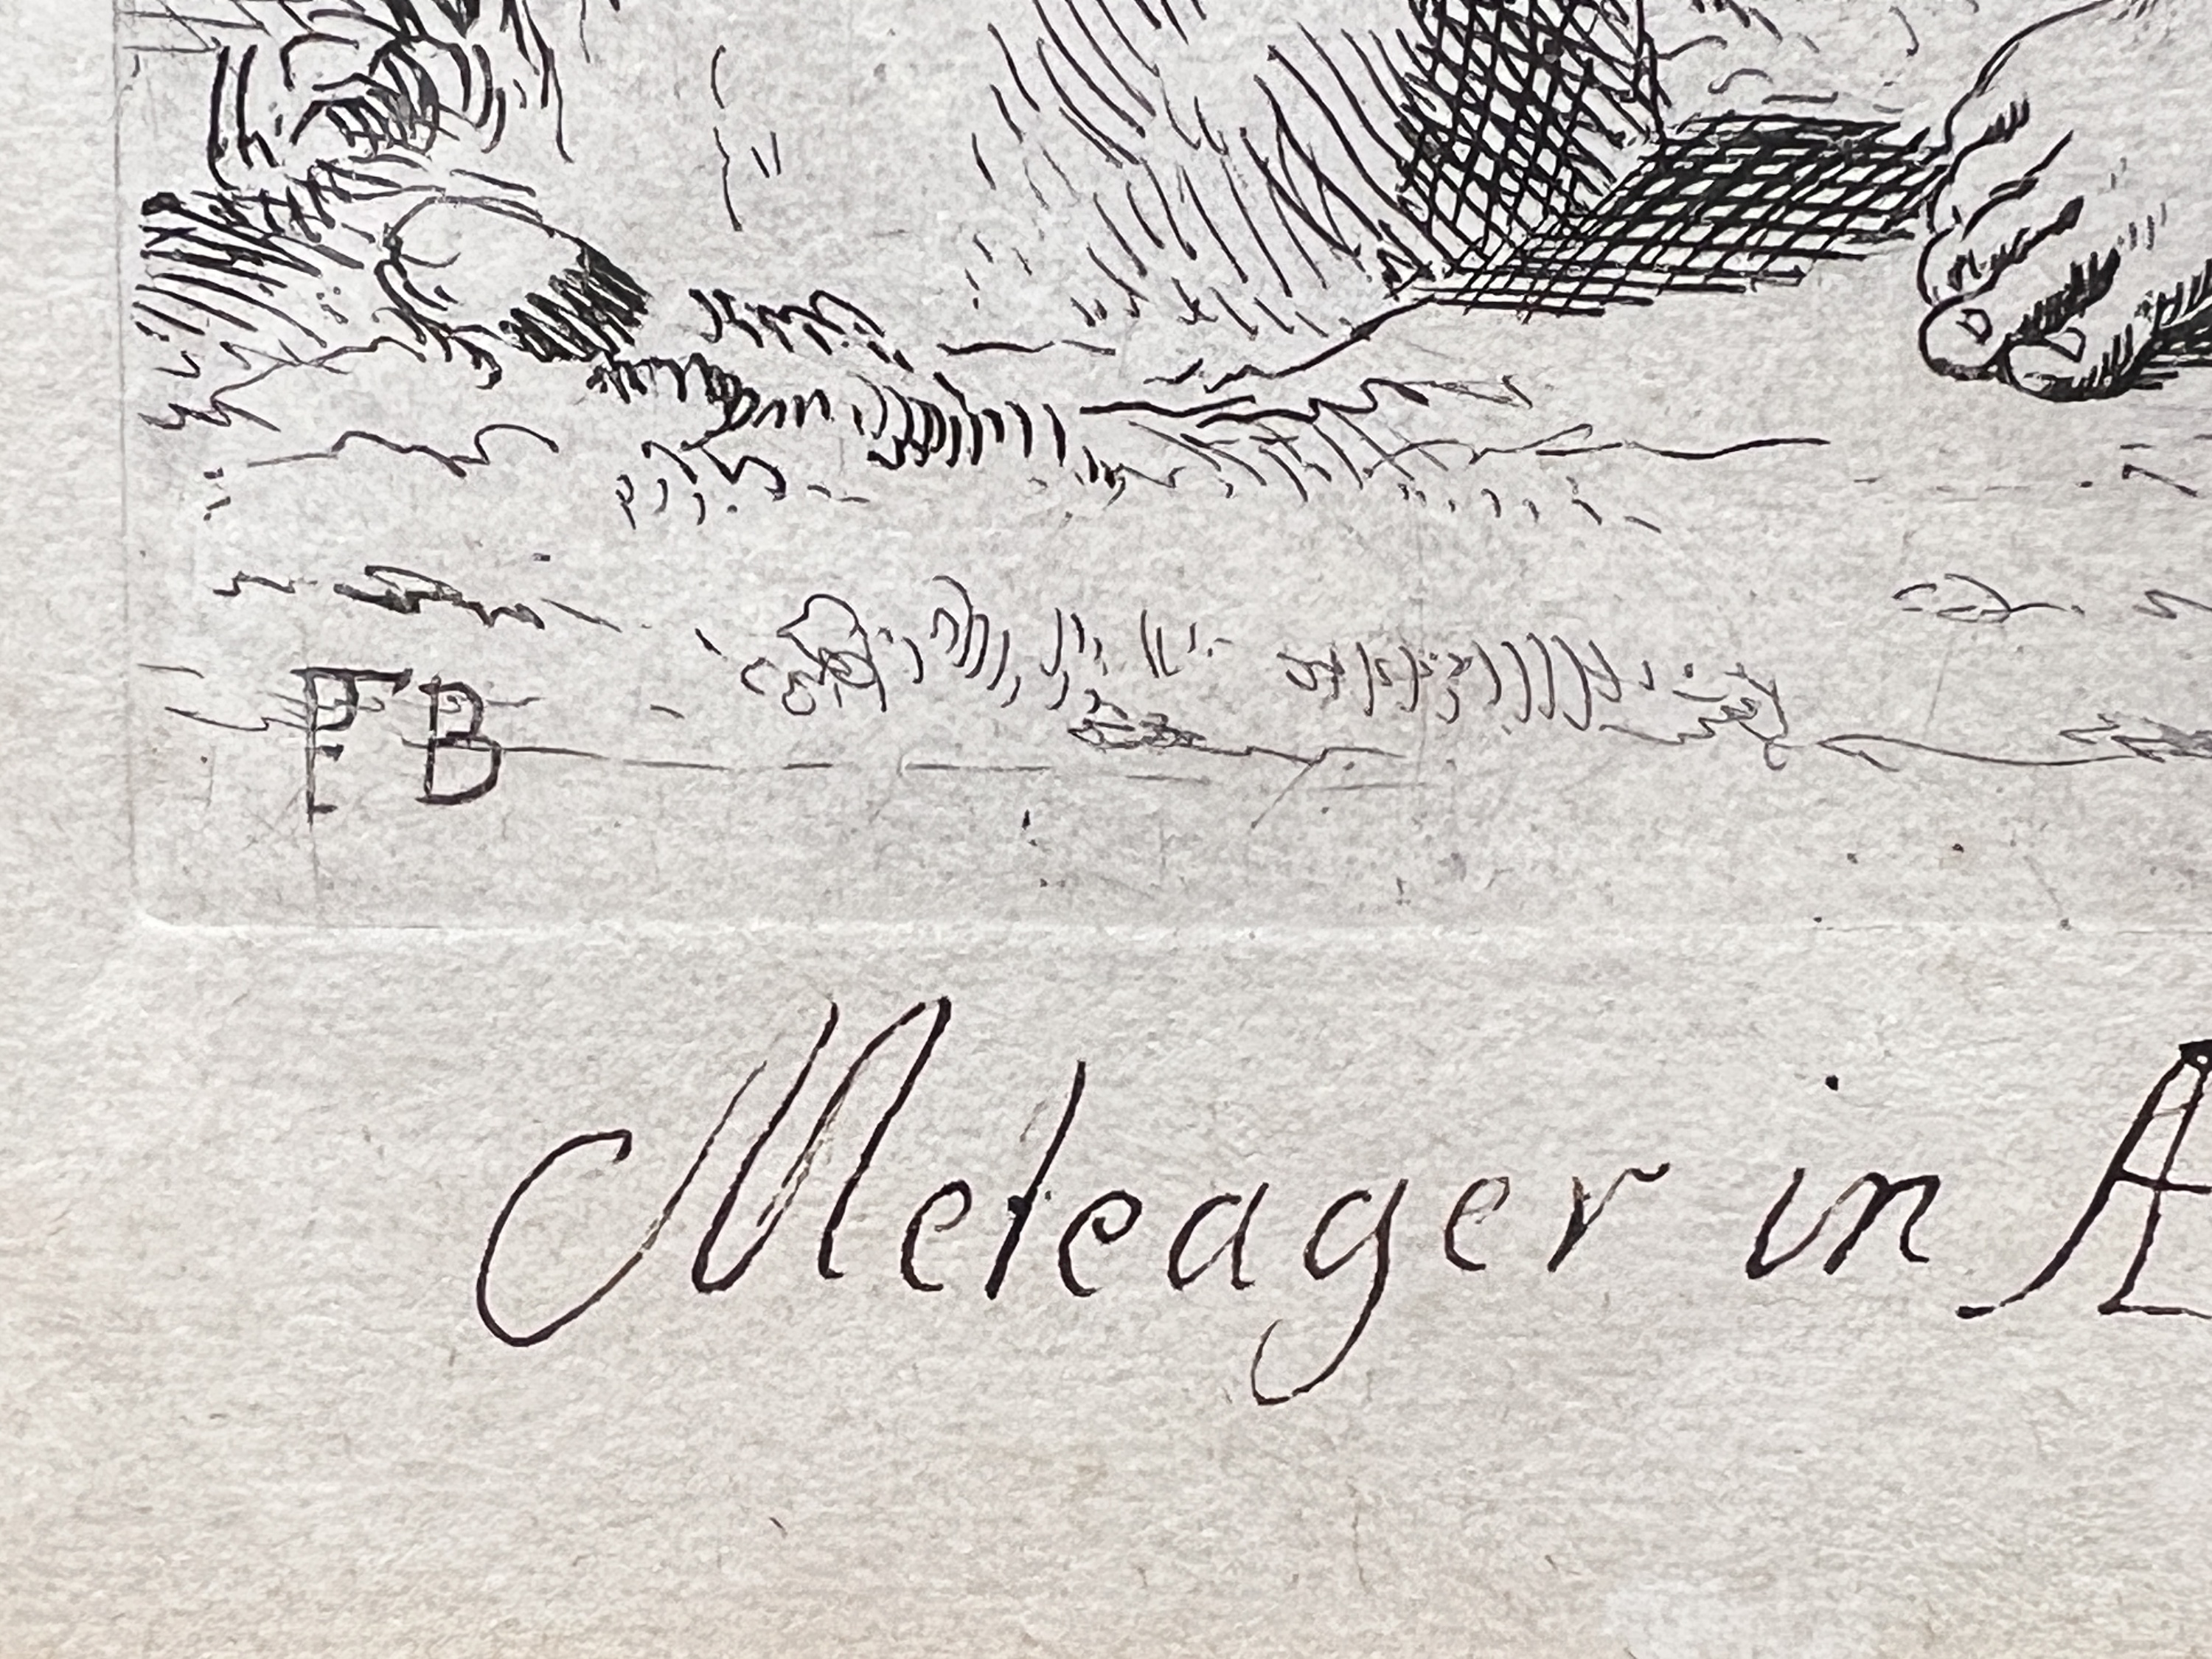 FB
Meleager in Æ